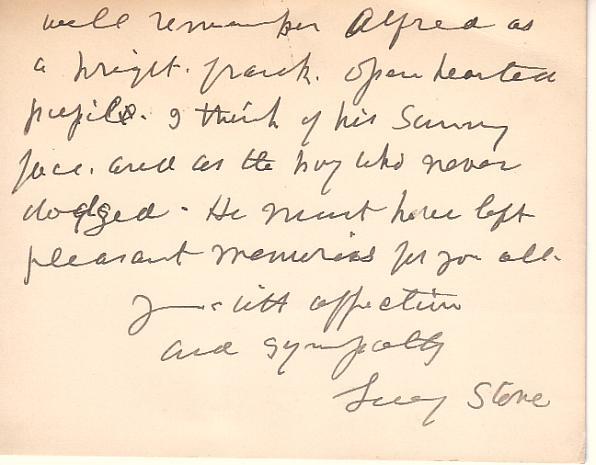 well remember Alfred as
a bright. frank. open hearted
pupil. I think of his Sunny
face. and as the boy who never
dodged - He must have left
pleasant memories for you all.
Yours with affection
and sympathy
Lucy Stone